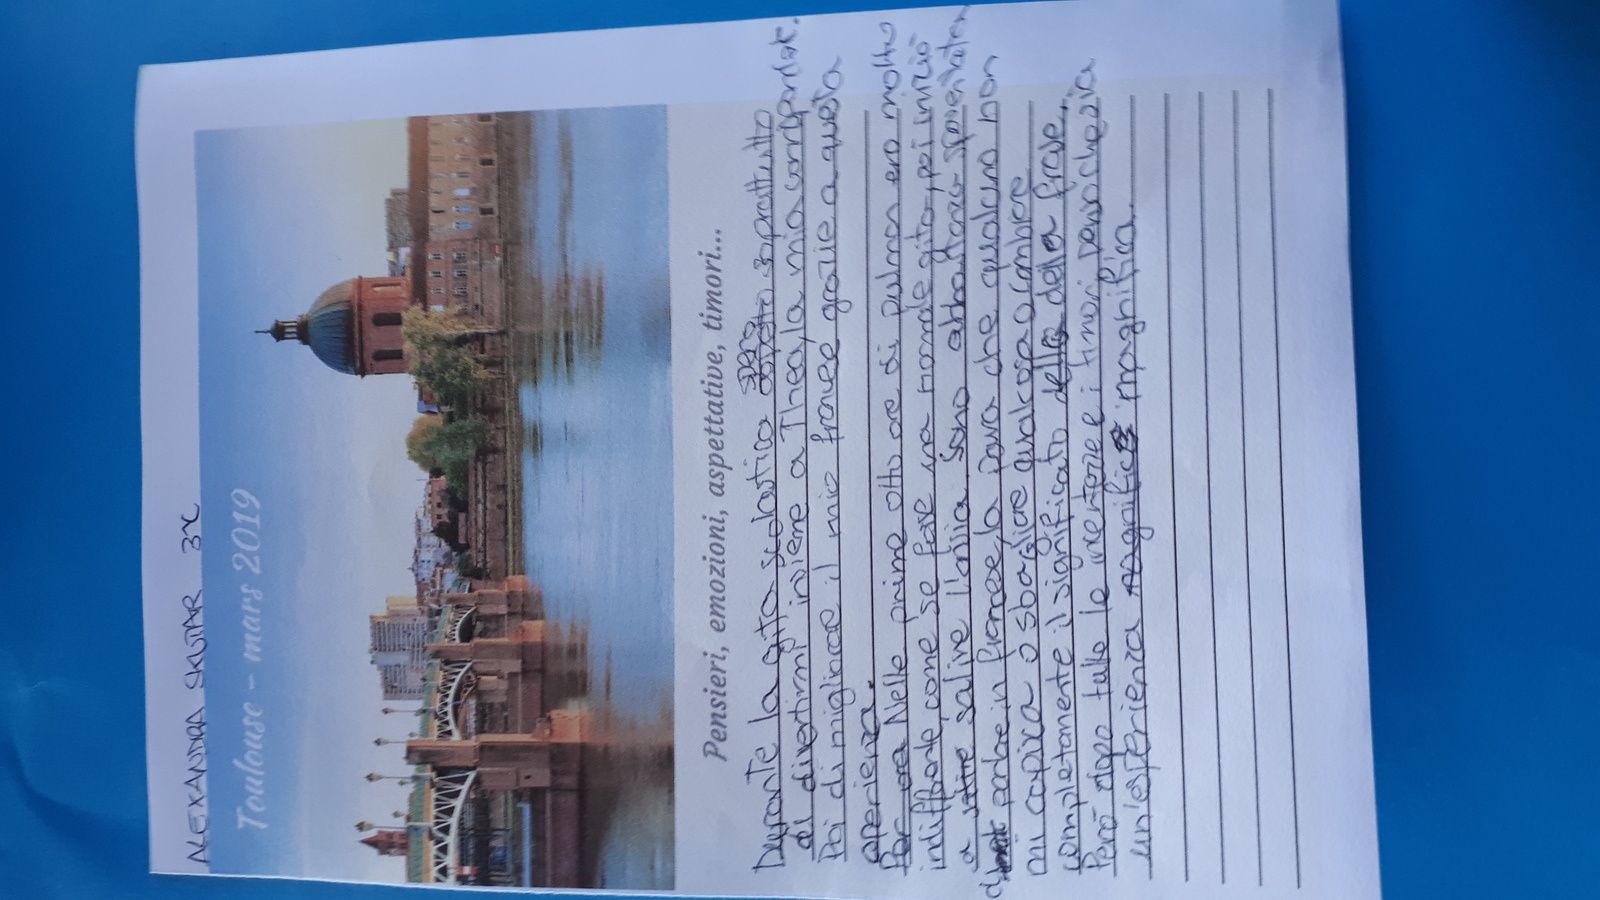 ALEXANDRA SKUTAR 3x
Toulouse – mars 2019
Pensieri, emozioni, aspettative, timori...
Durante la gita scolastica spero soprattutto
di divertirmi insieme a Thea, la mia corrispondente.
Poi di migliorare il mio francese grazie a questa
esperienza.
Per ora Nelle prime otto ore di pulman ero molto
indifferente, come se fosse una normale gita, poi iniziò
a salire l'ansia. Sono abbastanza spaventata
di parlare in francese, la paura che qualcuno non
mi capisca o sbagliare qualcosa o cambiare
completamente il significato della frase.
Però dopo tutte le incertezze e i timori penso che sia
un'esperienza magnifica.